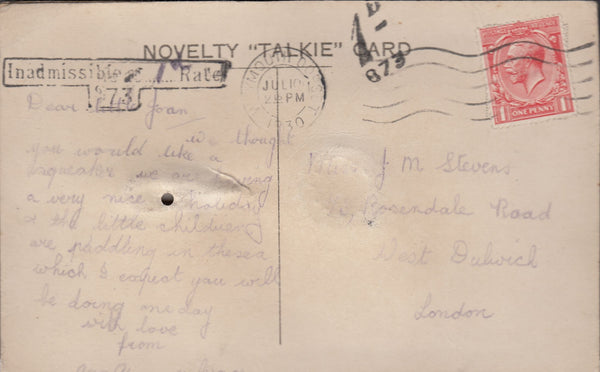 NOVELTY "TALKIE" CARD
Inadmissible at Rate
873
JUL 10
2 PM
1930
1D
873
ONE PENNY
Dear Joan
we thought
you would like a
squeaker we are
a very nice holiday
& the little children
are paddling in the sea
which I expect you will
be doing one day
with love
from
J M Stevens
Rosendale Road
West Dulwich
London